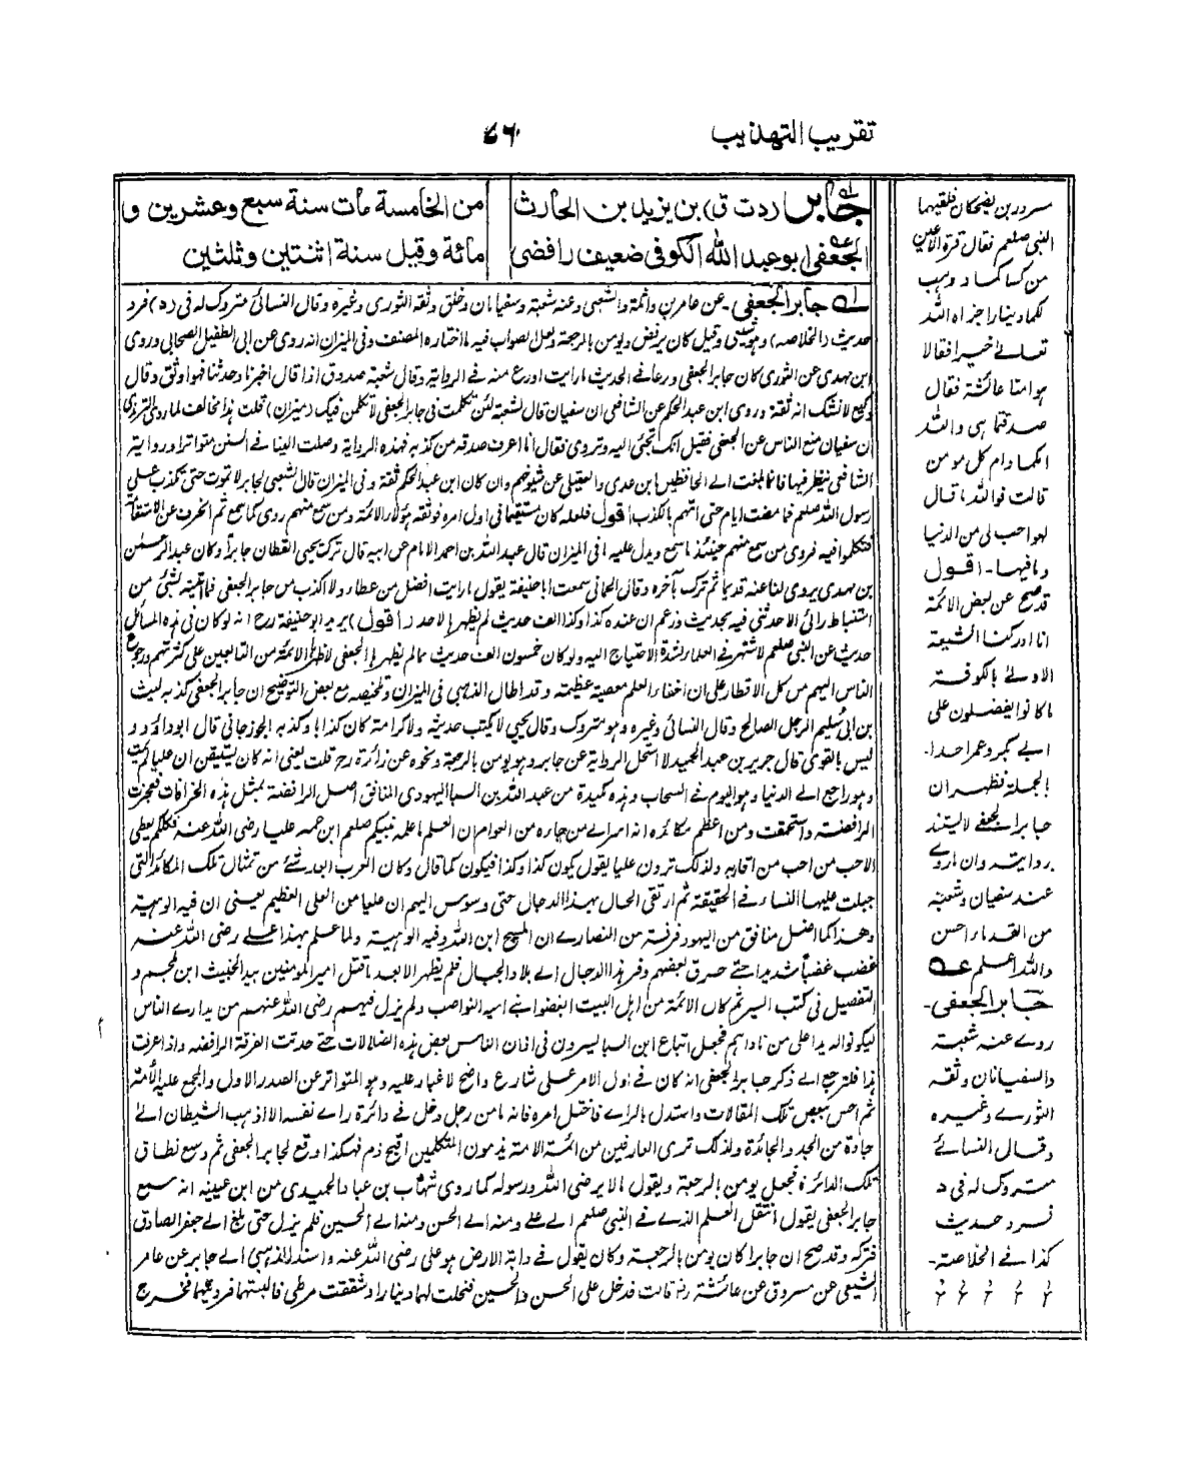 تقريب التهذيب
٧٦
جابر (د ت ق) بن يزيد بن الحارث
الجعفى ابو عبد الله الكوفى ضعيف رافضى
من الخامسة مات سنة سبع وعشرين و
مائة وقيل سنة اثنتين وثلثين
له جابر الجعفى - عن عامر بن واثلة والشعبى وعنه شعبة وسفيانان وخلق وثقه الثورى وغيره وقال النسائى متروك له فى (د) فرد
حديث (الخلاصه) وقيل كان يرفض ويومن بالرجعة ولعل الصواب فيه ما اختاره المصنف وفى الميزان انه روى عن ابى الطفيل الصحابى وروى
ابن مهدى عن الثورى كان جابر الجعفى ورعا فى الحديث ما رايت اورع منه فى الرواية وقال شعبة صدوق اذا قال اخبرنا وحدثنا فهو اوثق وقال
وكيع لا نشك انه ثقة وروى ابن عبد الحكم عن الشافعى ان سفيان قال لشعبة لئن تكلمت فى جابر الجعفى لا تكلمن فيك (ميزان) قلت هذا مخالف لما روى الترمذى
ان سفيان منع الناس عن الجعفى فقيل انك تجئى اليه وتروى فقال انا اعرف صدقه من كذبه فهذه الرواية وصلت الينا فى السنن متواترا ورواية
الشافعى ينظر فيها فانما بلغت الى الحافظين ابن عدى والعقيلى عن شيوخهم وان كان ابن عبد الحكم ثقة وفى الميزان قال الشعبى لجابر لا تموت حتى تكذب على
رسول الله صلعم فما مضت ايام حتى اتهم بالكذب اقول فلعله كان مستقيما فى اول امره فوثقه هؤلاء الائمة ومن سمع منهم روى كما سمع ثم انحرف عن الاستقامة
فتكلموا فيه فروى من سمع منهم حينئذ ما سمع ويدل عليه ما فى الميزان قال عبد الله بن احمد الامام عن ابيه قال ترك يحيى القطان جابرا وكان عبد الرحمن
بن مهدى يروى لنا عنه قديما ثم ترك بآخره وقال الحمانى سمعت ابا حنيفة يقول ما رايت افضل من عطاء ولا اكذب من جابر الجعفى فما اتيته بشئى من
استنباط رائى الا حدثنى فيه بحديث وزعم ان عنده كذا وكذا الف حديث لم يظهرها لاحد (اقول) يريد ابو حنيفة رح انه لو كان فى هذه المسائل
حديث عن النبى صلعم لاشتهر فى العلماء لشدة الاحتياج اليه ولو كان خمسون الف حديث ما لم يظهرها الجعفى لاظهرها الائمة من التابعين على كثرتهم ورجوع
الناس اليهم من كل الاقطار على ان اخفاء العلم معصية عظيمة وقد اطال الذهبى فى الميزان وتلخيصه مع بعض التوضيح ان جابر الجعفى كذبه ليث
بن ابى سليم الرجل الصالح وقال النسائى وغيره وهو متروك وقال يحيى لا يكتب حديثه ولا كرامة كان كذابا وكذبه الجوزجانى قال ابو داؤد
ليس بالقوى قال جرير بن عبد الحميد لا استحل الرواية عن جابر وهو يومن بالرجعة ونحوه عن زائدة رح قلت يعنى انه كان يستيقن ان عليا لم يمت
وهو راجع الى الدنيا وهو اليوم فى السحاب وهذه كميدة من عبد الله بن السبا اليهودى المنافق اضل الرافضة بمثل هذه الخرافات فتحيرت
الرافضة واستحمقت ومن اعظم مكائده انه اسر الى من جاره من العوام ان العلم ما علمه نبيكم صلعم ابن عمه عليا رضى الله عنه فكلكم يعطى
الاحب من احب من اقاربه ولذلك ترون عليا يقول يكون كذا وكذا فيكون كما قال وكان العرب ابعد شئ من تمثال تلك المكائد التى
جبلت عليها النساء فى الحقيقة ثم ارتقى الحال بهذا الدجال حتى وسوس اليهم ان عليا من العلى العظيم يعنى ان فيه الوهية
وهذا كما اضل منافق من اليهود فرقة من النصارى ان المسيح ابن الله وفيه الوهية ولما علم بهذا على رضى الله عنه
غضب غضبا شديدا حتى حرق بعضهم وفر هذا الدجال الى بلاد الجبال فلم يظهر الا بعد ما قتل امير المؤمنين بيد الخبيث ابن ملجم و
التفصيل فى كتب السير ثم كان الائمة من اهل البيت ابغضوا بنى اميه النواصب ولم يزل فيهم رضى الله عنهم من يدارى الناس
ليكونوا له يدا على من ناداهم فجعل اتباع ابن السبا يسرون فى اذان الناس بعض هذه الضلالات حتى حدثت الفرقة الرافضه واذا عرفت
هذا فلترجع الى ذكر جابر الجعفى انه كان فى اول الامر على شارع واضح لا غبار عليه وهو المتواتر عن الصدر الاول والمجمع عليه الأمة
ثم احس ببعض تلك المقالات واستدل بالراى فاختل امره فانه ما من رجل دخل فى دائرة راى نفسه الا اذهب الشيطان الى
جادة من الجد والجائدة ولذلك ترى العارفين من ائمة الامة يذمون المتكلمين اقبح ذم فهكذا وقع لجابر الجعفى ثم وسع نطاق
تلك الدائرة فجعل يومن بالرجعة ويقول ما لا يرضى الله ورسوله كما روى شهاب بن عباد الحميدى من ابن عيينه انه سمع
جابر الجعفى يقول انتقل العلم الذى فى النبى صلعم الى على ومنه الى الحسن ومنه الى الحسين فلم يزل حتى بلغ الى جعفر الصادق
فتركه وقد صح ان جابرا كان يومن بالرجعة وكان يقول فى دابة الارض هو على رضى الله عنه واسند الذهبى الى جابر عن عامر
الشعبى عن مسروق عن عائشة رض قالت فدخل على الحسن والحسين فنحلت لهما دينارا وشققت مرطى فالبستهما فرديهما فخرج
مسرورين يضحكان فلقيهما
النبى صلعم فقال قرة الاعين
من كساكما و وهب
لكما دينارا جزاه الله
تعالى خيرا فقالا
هو امنا عائشة فقال
صدقتما هى والله
امكما وام كل مومن
قالت فوالله ما قال
لهو احب لى من الدنيا
وما فيها - اقول
قد صح عن بعض الائمة
انا ادركنا الشيعة
الاولى بالكوفة
ما كانوا يفضلون على
ابى بكر وعمر احدا -
الجملة نظهر ان
جابر الجعفى لا يستند
بروايته وان روى
عنه سفيان وشعبة
من القدماء احسن
والله اعلم عه
جابر الجعفى -
روى عنه شعبة
والسفيانان وثقه
الثورى وغيره
وقال النسائى
متروك له فى د
فرد حديث
كذا فى الخلاصة -